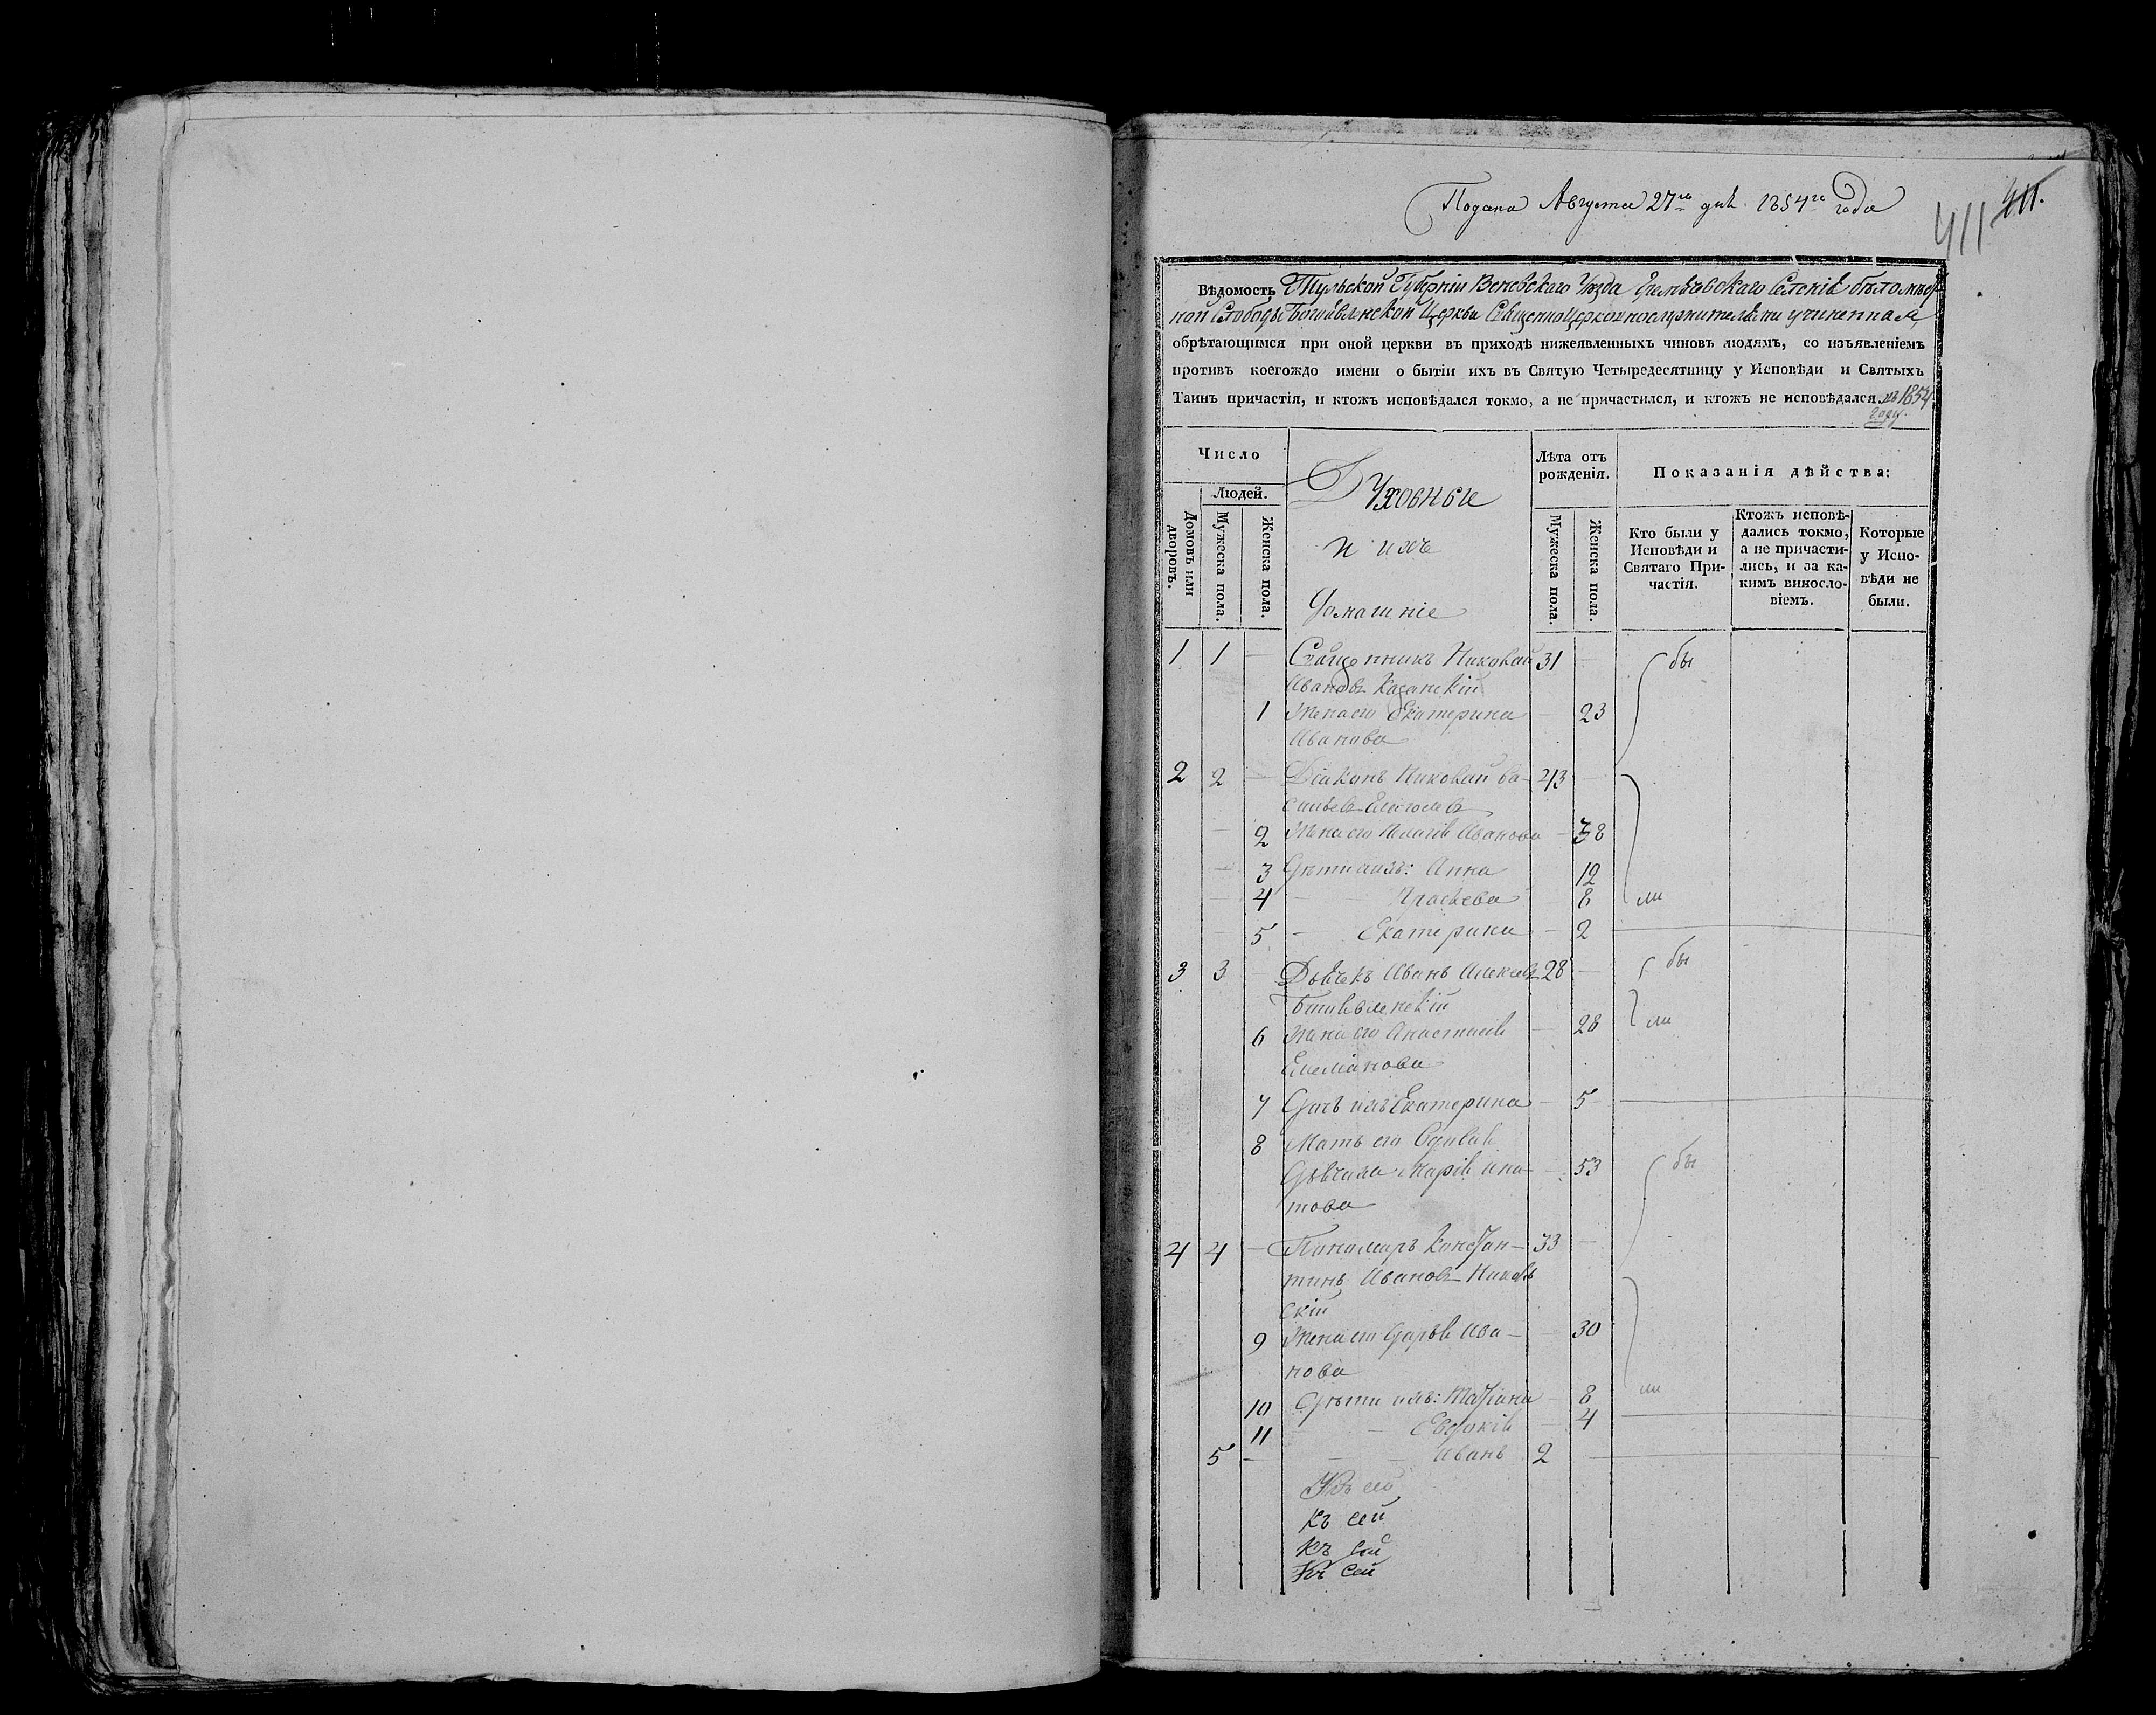 Подана Августа 27го дня 1854го года
411.
411
Вѣдомость Тульской Губерніи Веневскаго Уѣзда Селенія бѣломѣст
ной Слободы Богоявленской Церкви Священноцерковнослужителями учиненная,
обрѣтающимся при оной церкви въ приходѣ нижеявленныхъ чиновъ людямъ, со изъявленіемъ
противъ коегождо имени о бытіи ихъ въ Святую Четыредесятницу у Исповѣди и Святыхъ
Таинъ причастія, и ктожъ исповѣдался токмо, а не причастился, и ктожъ не исповѣдался въ 1854
году.
Число
Людей.
Домовъ или дворовъ.
Мужеска пола.
Женска пола.
Духовные
и ихъ
домашніе
Лѣта отъ
рожденія.
Мужеска пола.
Женска пола.
Показанія дѣйства:
Кто были у
Исповѣди и
Святаго При-
частія.
Ктожъ исповѣ-
дались токмо,
а не причасти-
лись, и за ка-
кимъ винословіемъ.
Которые
у Испо-
вѣди не
были.
1 1 — Священникъ Николай 31 — бы
Ивановъ Казанскій
1 Жена его Екатерина — 23
Иванова
2 2 — Діаконъ Николай Ва- 43 —
сильевъ
— 2 Жена его Пелагія Иванова — 38
— 3 Дѣти ихъ: Анна 12
— 4 — Прасковья 8 ли
— 5 — Екатерина — 2
3 3 — Дьячекъ Иванъ Алексѣевъ 28 — бы
Богоявленскій
6 Жена его Анастасія — 28 ли
Емеліанова
7 Дочь ихъ Екатерина — 5
8 Мать его вдовая
Дьячиха Марія Ипа- — 53 бы
това
4 4 — Пономарь Констан- 33 —
тинъ Ивановъ Николь
скій
9 Жена его Дарья Ива- — 30
нова
10 Дѣти ихъ: Татіана — 8 ли
11 — Евдокія — 4
5 — — Иванъ 2
Къ сей
Къ сей
Къ сей
Къ сей